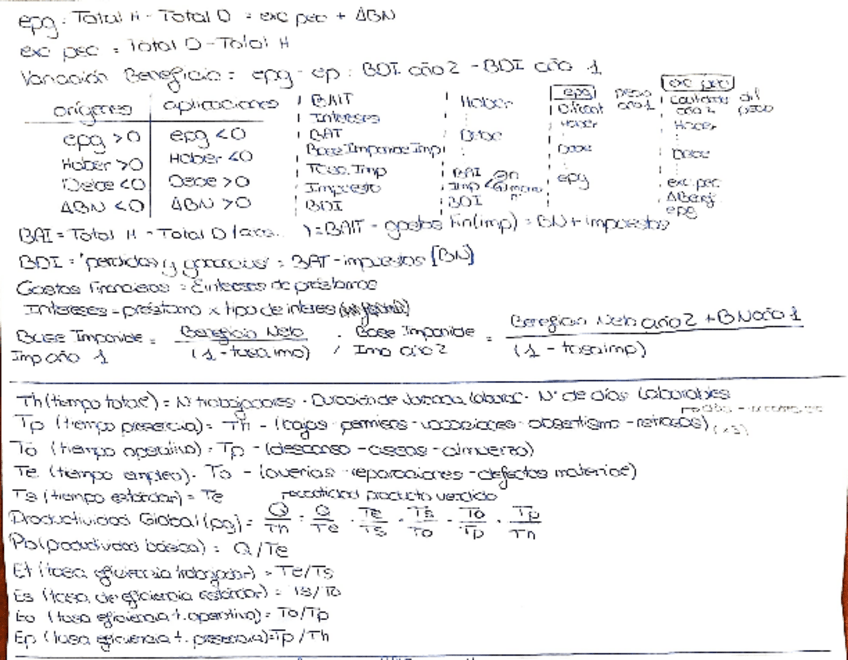 epg = Total H - Total D = exc pec + ΔBN
exc pec = Total D - Total H
Variación Beneficio = epg - ep = BDI año 2 - BDI año 1
orígenes | aplicaciones
epg > 0 | epg < 0
Haber > 0 | Haber < 0
Debe < 0 | Debe > 0
ΔBN < 0 | ΔBN > 0
BAIT
Intereses
BAT
Base Imponible Imp
Tasa Imp
Impuesto
BDI
Haber
Debe
BAI
Imp
BDI
epg
año 1
Haber
Debe
epg
exc pec
año 2
Haber
Debe
exc pec
ΔBenef
epg
BAI = Total H - Total D = BAIT - gastos fin (imp) = BN + impuestos
BDI = "perdidas y ganancias" = BAT - impuestos [BN]
Gastos Financieros = Σ intereses de préstamos
Intereses = préstamo x tipo de interes
Base Imponible Imp año 1 = Beneficio Neto / (1 - tasa imp) ; Base Imponible Imp año 2 = Beneficio Neto año 2 + BN año 1 / (1 - tasa imp)
Th (tiempo total) = Nº trabajadores · Duración de jornada laboral · Nº de días laborables
Tp (tiempo presencia) = Th - (bajas - permisos - vacaciones - absentismo - retrasos)
To (tiempo operativo) = Tp - (descanso - aseos - almuerzo)
Te (tiempo empleo) = To - (averias - reparaciones - defectos material)
Ts (tiempo estándar) = Te · cantidad producto vendido
Productividad Global (pg) = Q/Th = Q/Te · Te/Ts · Ts/To · To/Tp · Tp/Th
Pb (productividad básica) = Q/Te
Et (tasa eficiencia trabajador) = Te/Ts
Es (tasa de eficiencia estándar) = Ts/To
Eo (tasa eficiencia t. operativo) = To/Tp
Ep (tasa eficiencia t. presencia) = Tp/Th